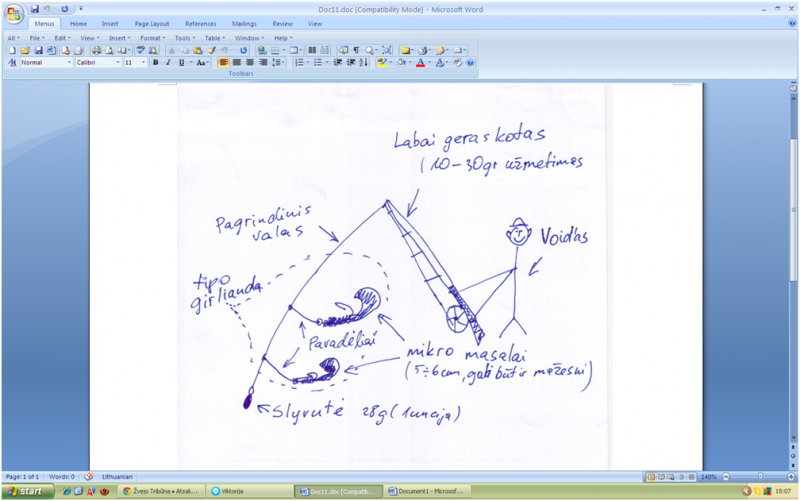 Doc11.doc [Compatibility Mode] - Microsoft Word
Menus Home Insert Page Layout References Mailings Review View Add-Ins
All File Edit View Insert Format Tools Table Window Help
Normal Calibri 11 B I U
Toolbars
Labai geras kotas
(10-30gr užmetimas
Pagrindinis
valas
Voidas
tipo
girlianda
Pavadėliai
mikro masalai
(5÷6cm, gali būt ir mažesni)
Slyvutė 28g (1uncija)
Page: 1 of 1 Words: 0 Lithuanian 140%
start Žvejo Tribūna • Atsak... Viktorija Doc11.doc [Compatib... Document1 - Microsof... 18:07